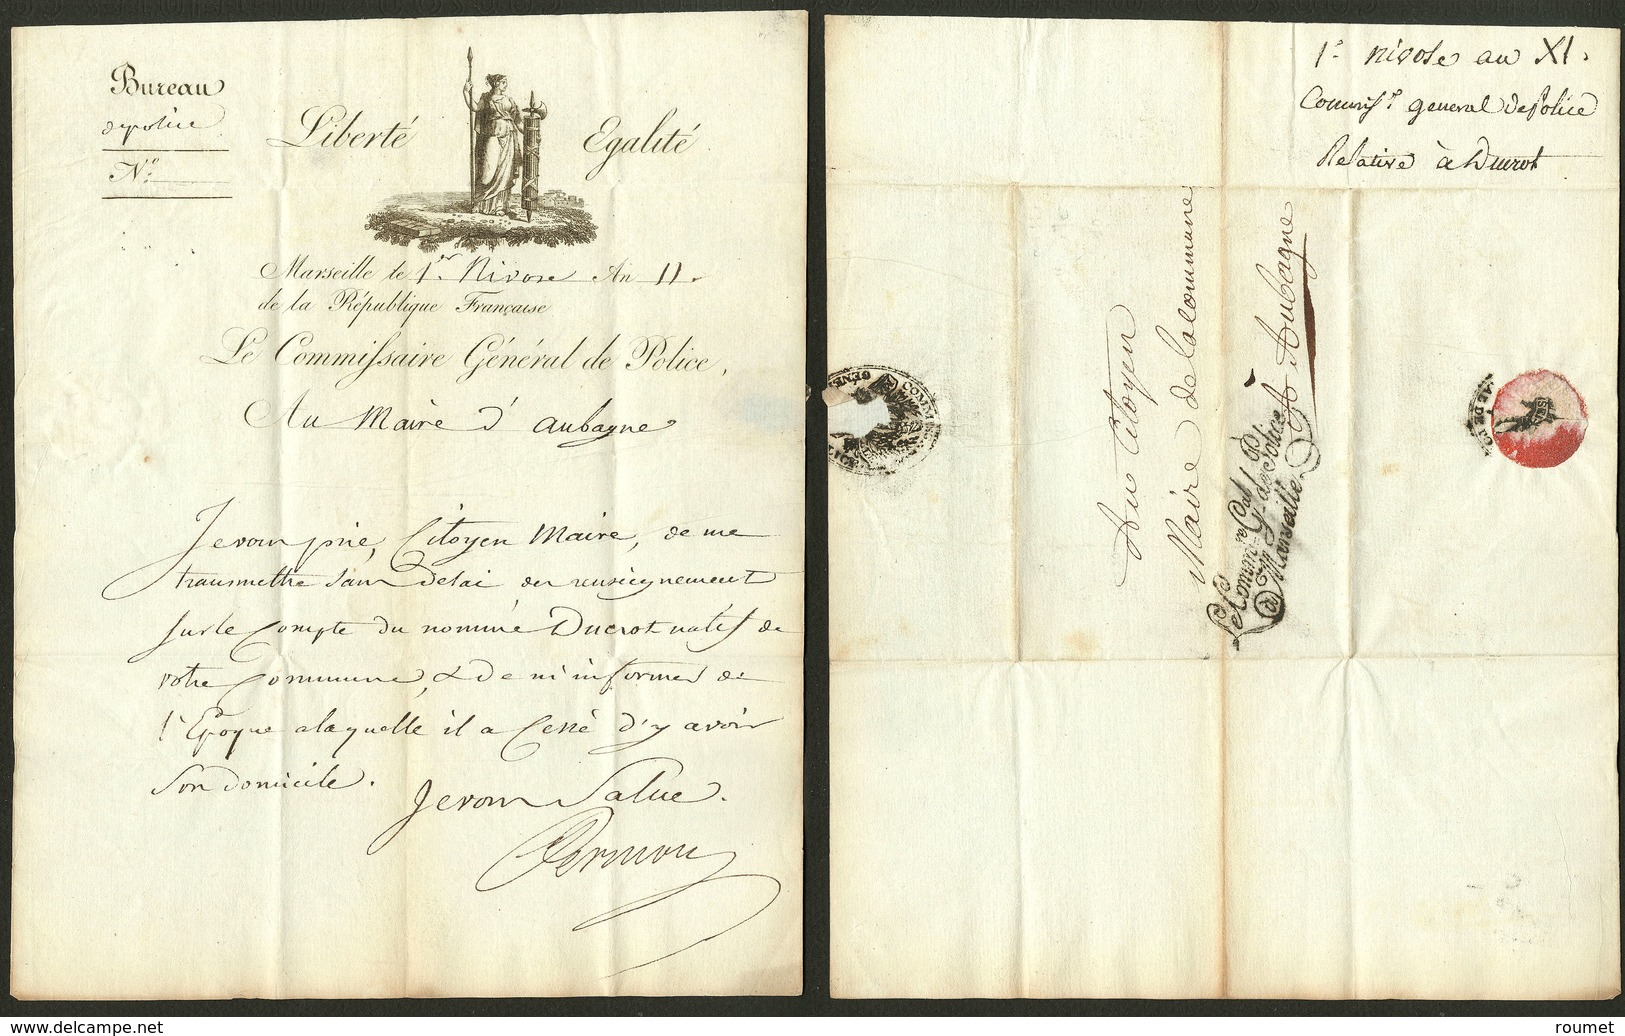 Bureau
de police
N.º
Liberté
Egalité
Marseille le 1.er Nivose An 11.
de la République Française
Le Commissaire Général de Police,
Au Maire d'aubagne
Je vous prie, Citoyen Maire, de me
transmettre sans délai des renseignements
sur le Compte du nommé Ducrot natif de
votre Commune, & de m'informer de
l'Epoque a laquelle il a Cessé d'y avoir
Son domicile.
Je vous Salue.
Permon
1.er nivose an XI.
Commiss.re general de Police
Relative à Ducrot
Au Citoyen
Maire de la Commune
A Aubagne
Le Comm.re G.al de Police
à Marseille
COMM
GÉNÉ
LICE
AL DE
delcampe.net
roumet